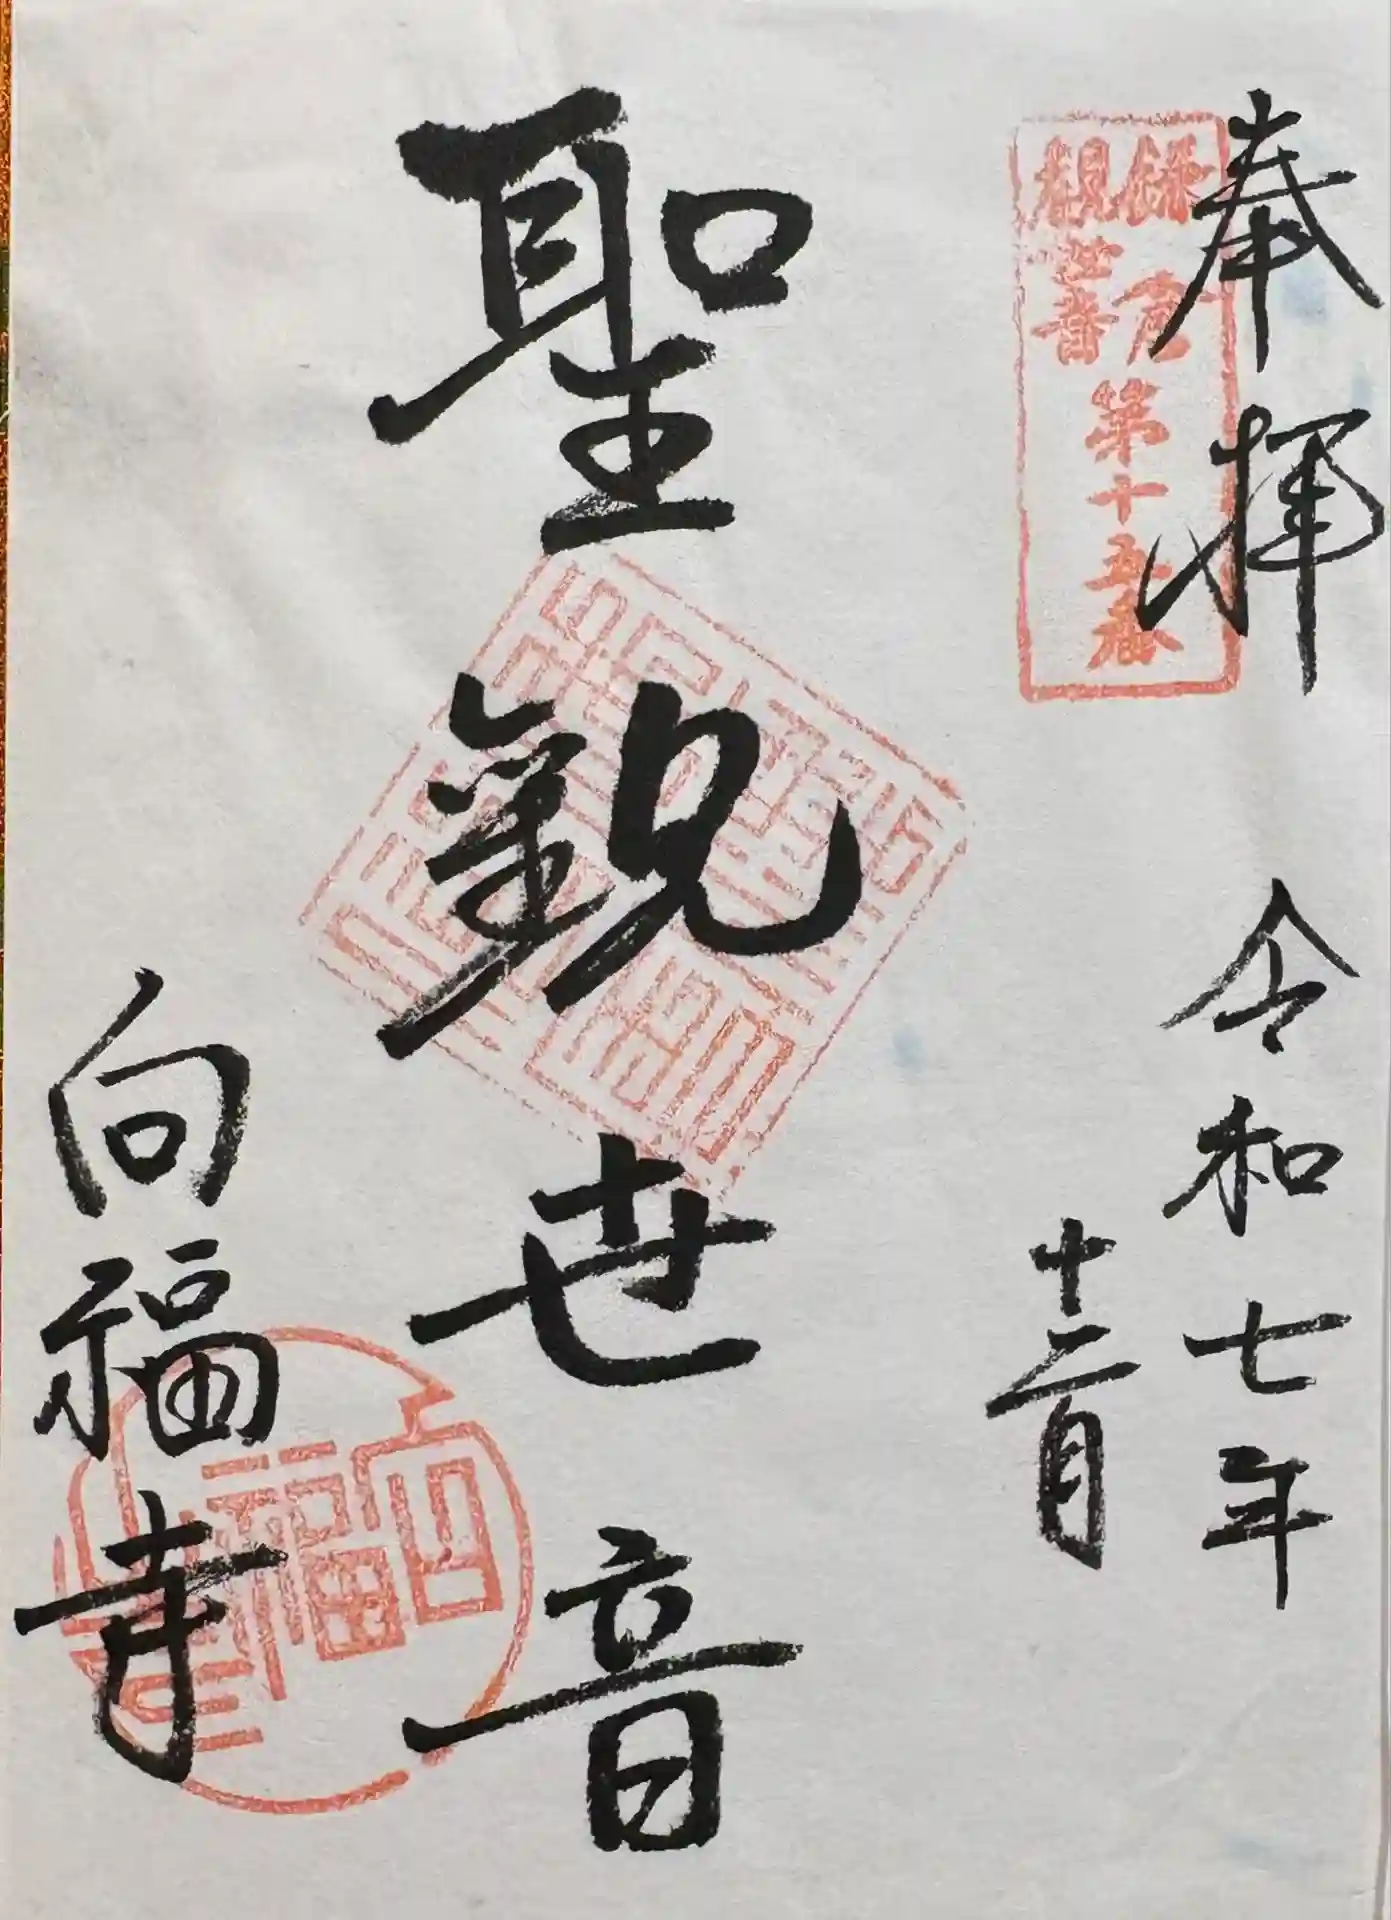 奉拝
令和七年
十二月
鎌倉
観世音
第十五番
聖観世音
向福寺
向福寺